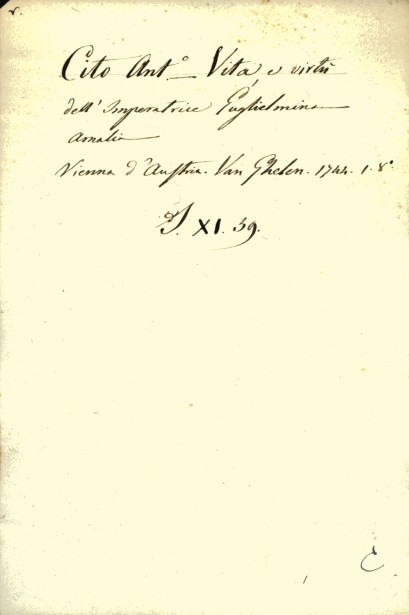 v.
Cito Ant.º Vita, e virtù
dell'Imperatrice Guglielmina
Amalia
Vienna d'Austria. Van Ghelen. 1744. 1. 8º
XI. 39.